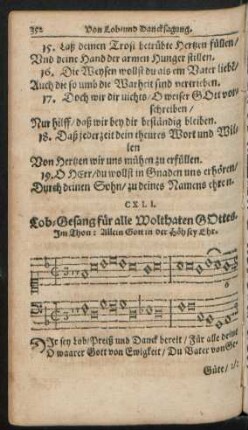 352 Von Lob und Dancksagung.
15. Laß deinen Trost betrübte Hertzen füllen/
Und deine Hand der armen Hunger stillen.
16. Die Weysen wollst du als ein Vater lieben/
Auch die so umb die Warheit sind vertrieben.
17. Doch wir dir nichts/ O weiser GOtt vor-
schreiben/
Nur hilff/ daß wir bey dir beständig bleiben.
18. Daß jederzeit dein theures Wort und Wil-
len
Von Hertzen wir uns mühen zu erfüllen.
19. O HErr/ du wollst in Gnaden uns erhören/
Durch deinen Sohn/ zu deines Namens ehren.
CXLI.
Lob-Gesang für alle Wolthaten GOttes.
Im Thon: Allein Gott in der Höh sey Ehr.
DIr sey Lob/ Preiß und Danck bereit/ Für alle deine
O waarer Gott von Ewigkeit/ Du Vater von Ge-
Güte/